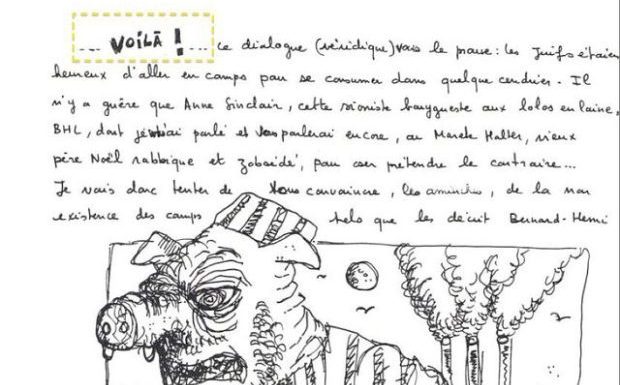 ... VOILÀ ! ... ce dialogue (véridique) vous le prouve : les Juifs étaien
heureux d'aller en camps pour se consumer dans quelque cendrier. Il
n'y a guère que Anne Sinclair, cette sioniste bouygueste aux lolos en laine,
BHL, dont je ai parlé et vous parlerai encore, ou Marek Halter, vieux
père Noël rabbique et pour oser prétendre le contraire...
Je vais donc tenter de vous convaincre, les aminches, de la non
existence des camps tels que les décrit Bernard-Henri